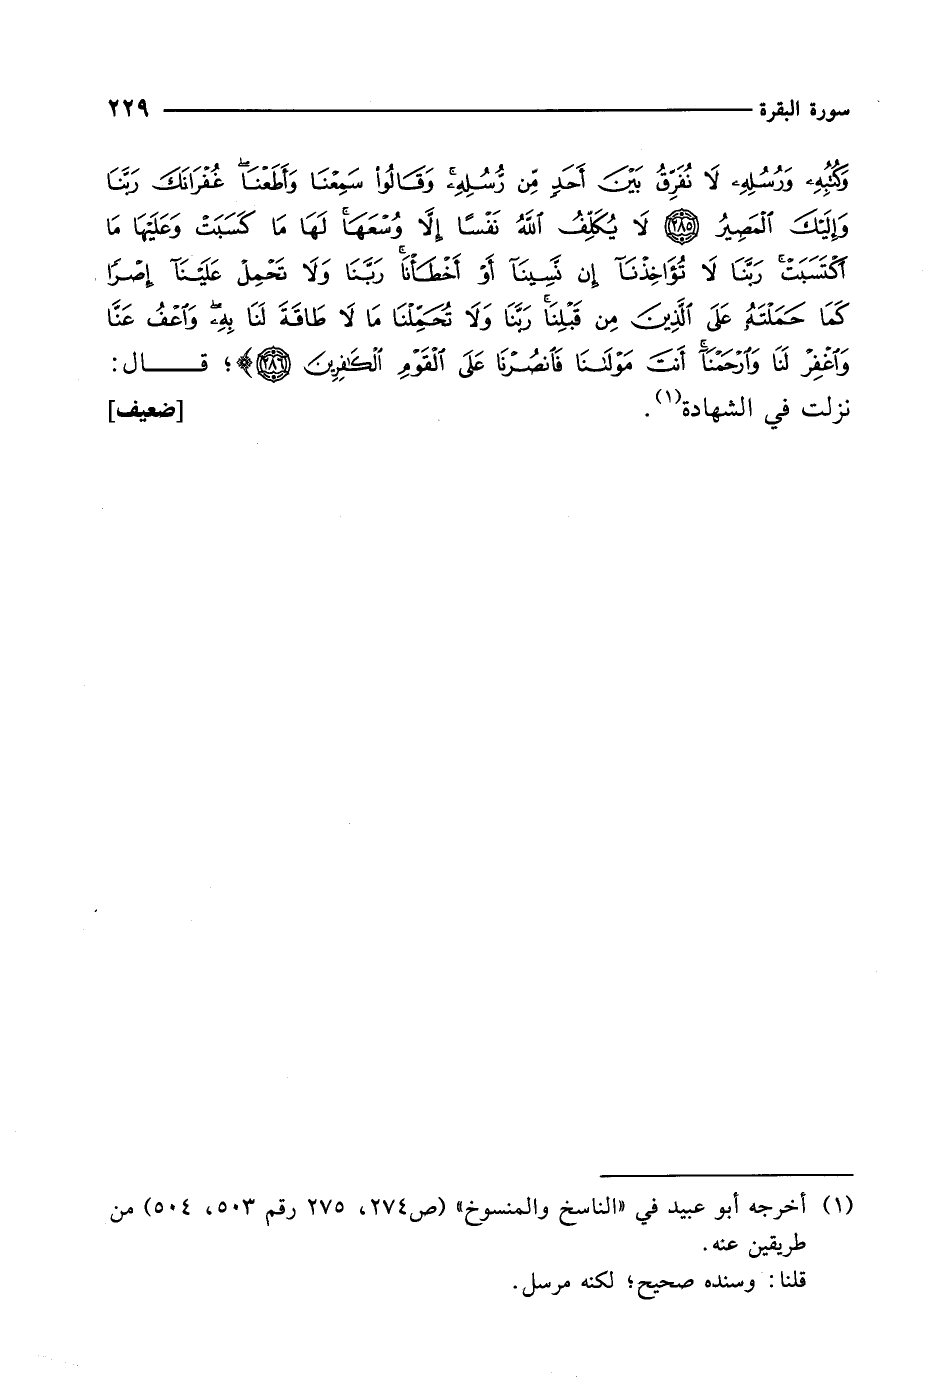 سورة البقرة ٢٢٩
وَكُتُبِهِۦ وَرُسُلِهِۦ لَا نُفَرِّقُ بَيْنَ أَحَدٍ مِّن رُّسُلِهِۦۚ وَقَالُوا۟ سَمِعْنَا وَأَطَعْنَاۖ غُفْرَانَكَ رَبَّنَا
وَإِلَيْكَ ٱلْمَصِيرُ ٢٨٥ لَا يُكَلِّفُ ٱللَّهُ نَفْسًا إِلَّا وُسْعَهَاۚ لَهَا مَا كَسَبَتْ وَعَلَيْهَا مَا
ٱكْتَسَبَتْۗ رَبَّنَا لَا تُؤَاخِذْنَآ إِن نَّسِينَآ أَوْ أَخْطَأْنَاۚ رَبَّنَا وَلَا تَحْمِلْ عَلَيْنَآ إِصْرًا
كَمَا حَمَلْتَهُۥ عَلَى ٱلَّذِينَ مِن قَبْلِنَاۚ رَبَّنَا وَلَا تُحَمِّلْنَا مَا لَا طَاقَةَ لَنَا بِهِۦۖ وَٱعْفُ عَنَّا
وَٱغْفِرْ لَنَا وَٱرْحَمْنَآۚ أَنتَ مَوْلَىٰنَا فَٱنصُرْنَا عَلَى ٱلْقَوْمِ ٱلْكَٰفِرِينَ ٢٨٦﴾؛ قــــال:
نزلت في الشهادة(١). [ضعيف]
(١) أخرجه أبو عبيد في «الناسخ والمنسوخ» (ص٢٧٤، ٢٧٥ رقم ٥٠٣، ٥٠٤) من
طريقين عنه.
قلنا: وسنده صحيح؛ لكنه مرسل.